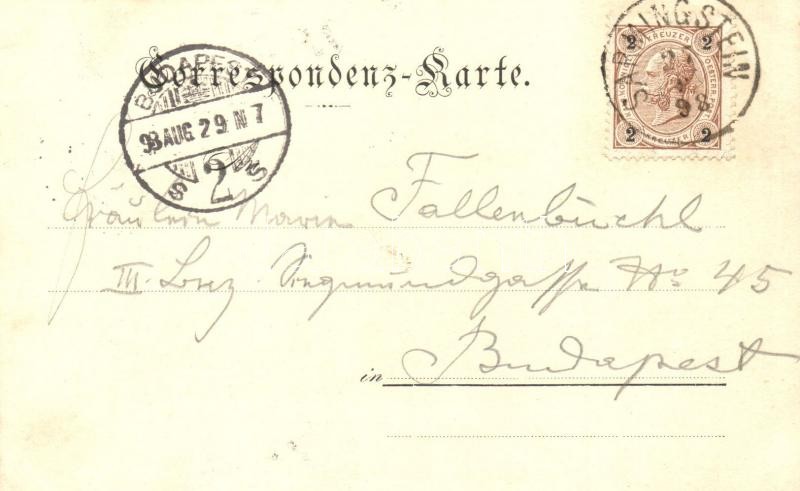 Correspondenz-Karte.
BUDAPEST
98 AUG 29 N 7
2
2 KREUZER 2
2 KREUZER 2
SARMINGSTEIN
98
Fräulein Marie Fallenbüchl
III. Bez. Sigmundgasse No 45
in Budapest